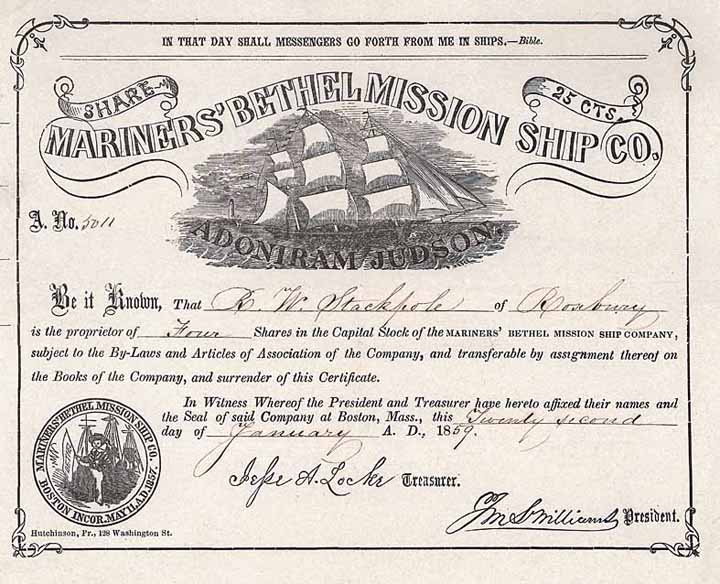 IN THAT DAY SHALL MESSENGERS GO FORTH FROM ME IN SHIPS.—Bible.
SHARE
25 CTS.
MARINERS' BETHEL MISSION SHIP CO.
ADONIRAM JUDSON.
A. No. 5011
Be it Known, That R. W. Stackpole of Roxbury
is the proprietor of Four Shares in the Capital Stock of the MARINERS' BETHEL MISSION SHIP COMPANY,
subject to the By-Laws and Articles of Association of the Company, and transferable by assignment thereof on
the Books of the Company, and surrender of this Certificate.
In Witness Whereof the President and Treasurer have hereto affixed their names and
the Seal of said Company at Boston, Mass., this Twenty second
day of January A. D., 1859.
MARINERS' BETHEL MISSION SHIP CO.
BOSTON INCOR. MAY 11. A.D. 1857.
Jesse A. Locke Treasurer.
Wm S Williams President.
Hutchinson, Pr., 128 Washington St.